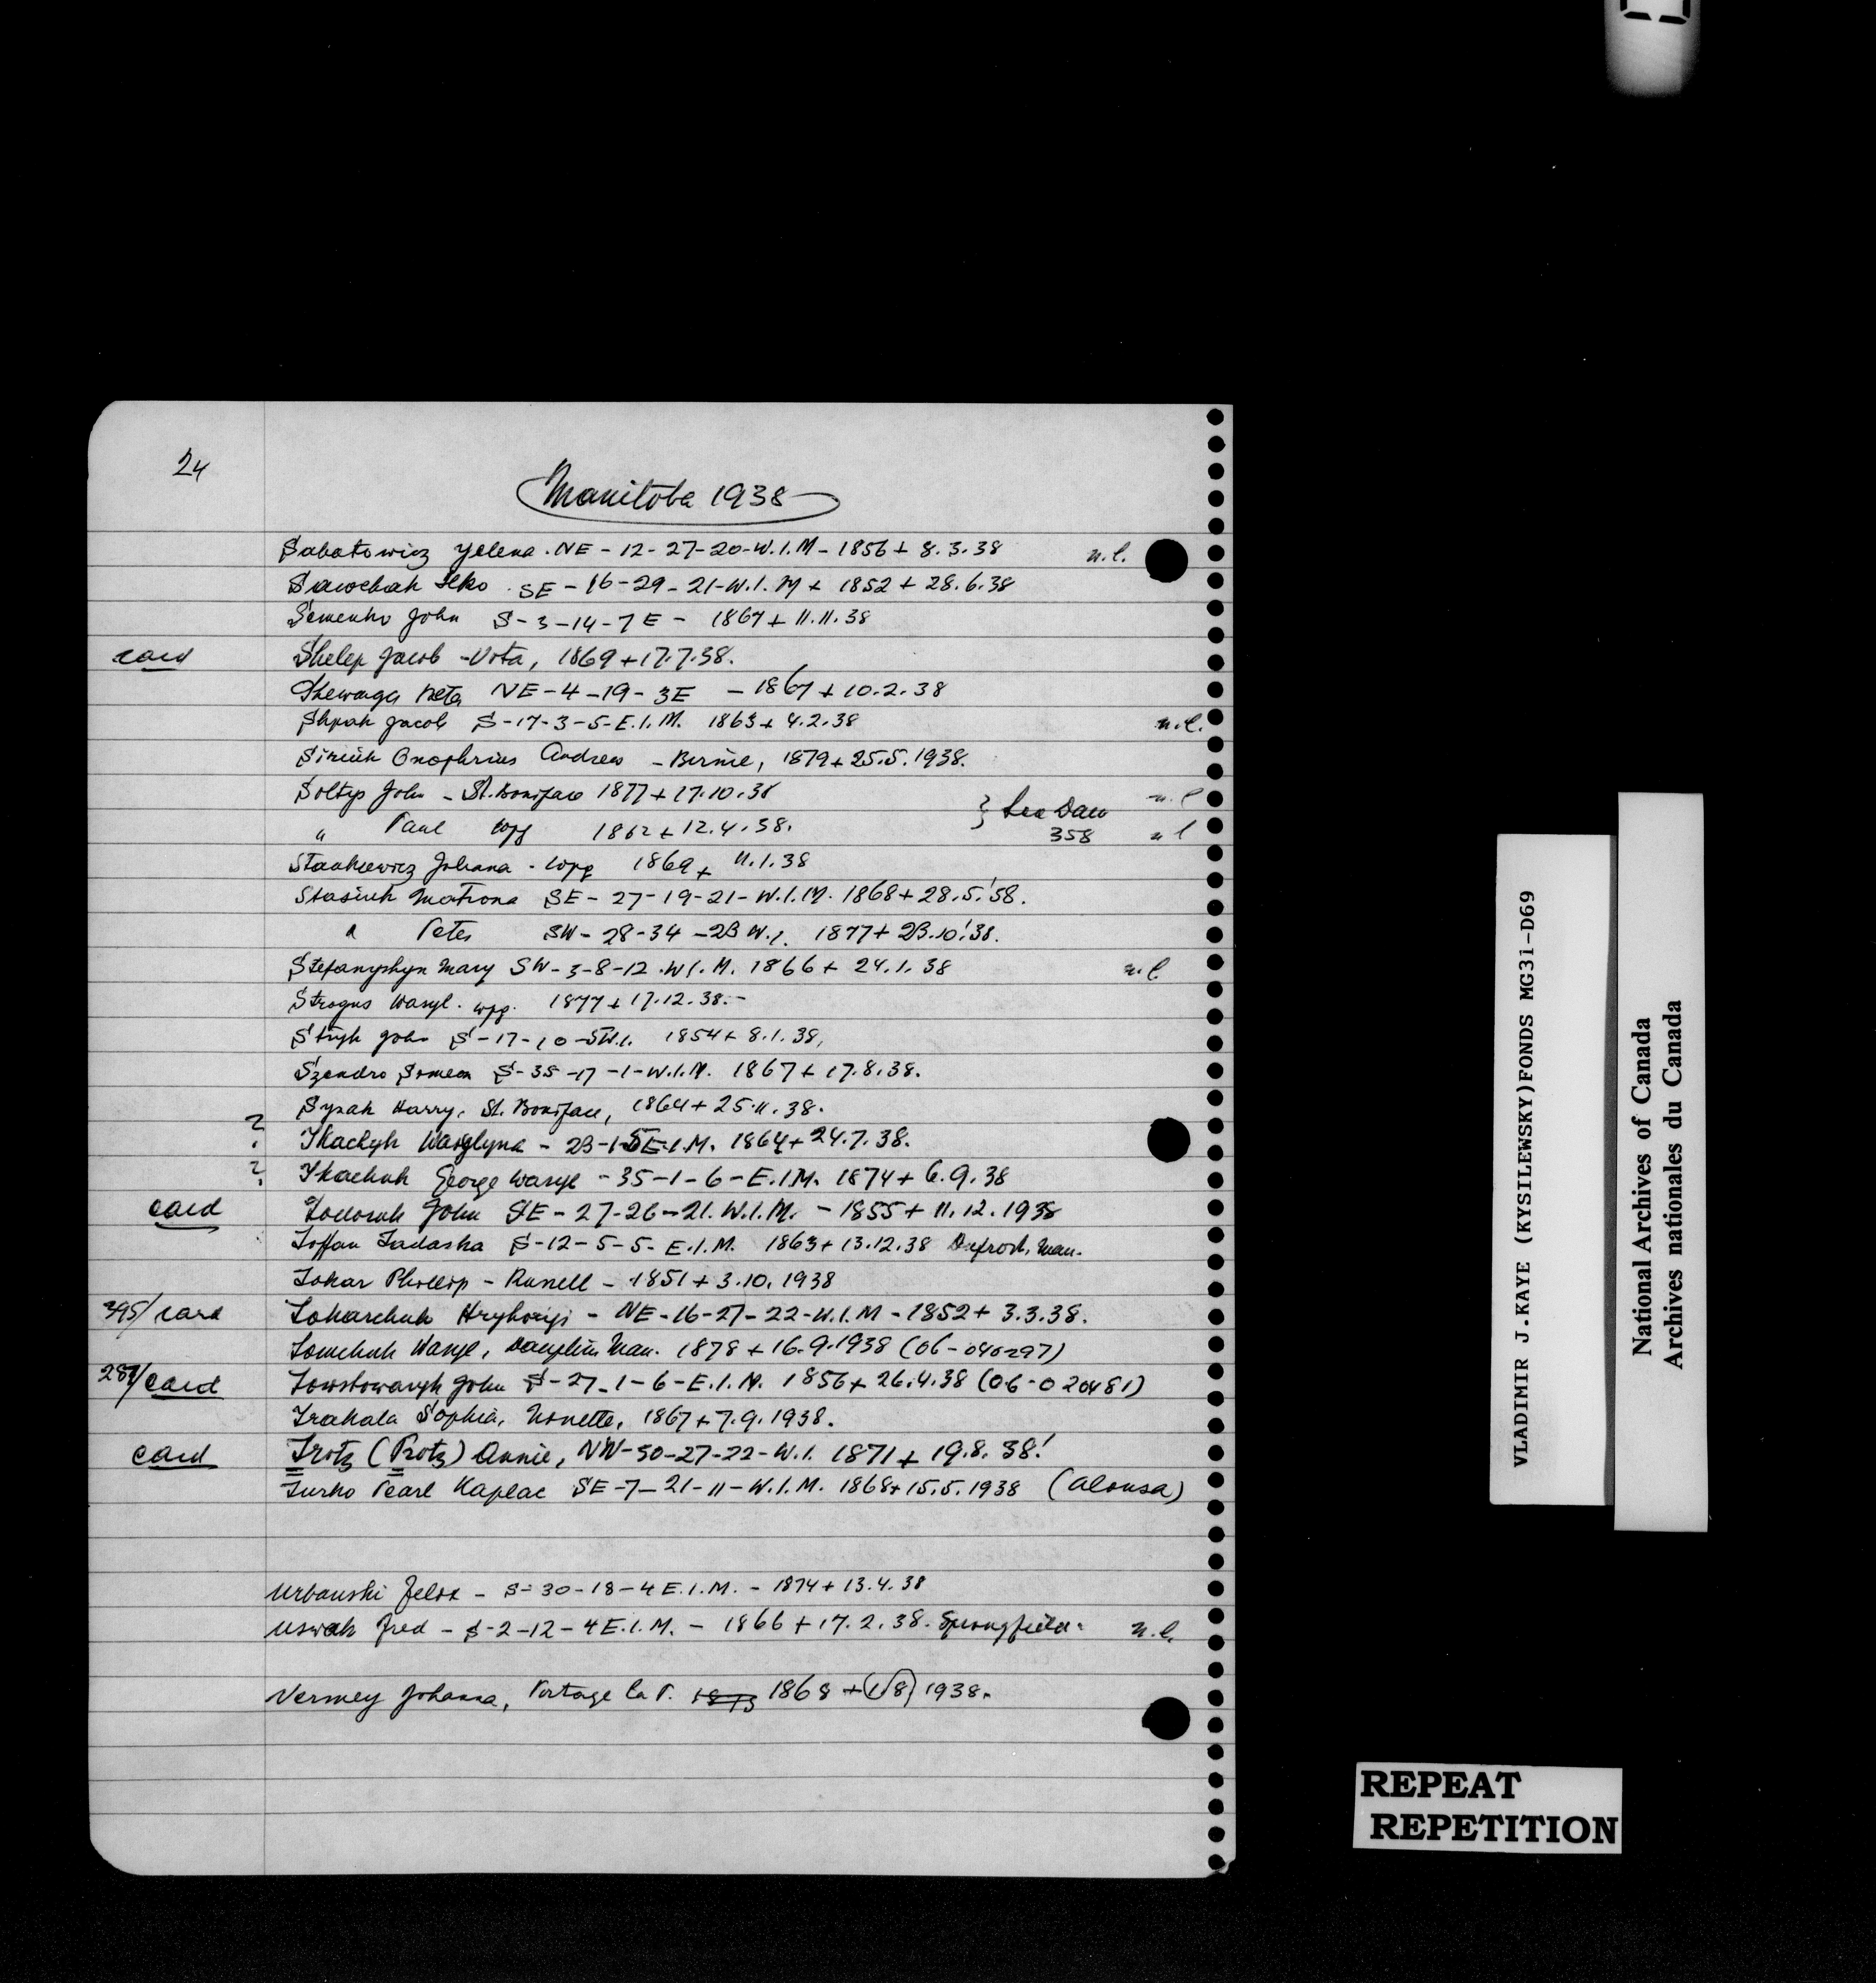 24
Manitoba 1938
Sabatowicz Jelena. NE - 12 - 27-20-W.I.M - 1856 + 8.3.38 n.l.
Sawchak Ilko. SE - 16-29-21-W.I.M + 1852 + 28.6.38
Semenko John S-3-14-7E - 1867 + 11.11.38
card Shelep Jacob - Vita, 1869 + 17.7.38.
Shewaga Peter NE-4-19-3E - 1867 + 10.2.38
Shpak Jacob S-17-3-5-E.I.M. 1863 + 4.2.38 n.l.
Onophrius Andrew - Birnie, 1879 + 25.5.1938.
Soltys John - St. Boniface 1877 + 17.10.38 n.l
" Paul Wpg 1862 + 12.4.38. } 358 n l
Stankiewicz Johana - Wpg 1869 + 11.1.38
Stasiuk Matrona SE - 27-19-21-W.I.M. 1868 + 28.5.'38.
" Peter SW - 28-34-23 W.I. 1877 + 23.10.'38.
Stefanyshyn Mary SW-3-8-12.W.I.M. 1866 + 24.1.38 n.l.
Wasyl. Wpg. 1877 + 17.12.38.-
Stryk John S-17-10-5W.I. 1854 + 8.1.38,
Szandro Simeon S-35-17-1-W.I.M. 1867 + 17.8.38.
Sysak Harry, St. Boniface, 1864 + 25.11.38.
? Tkachyk Wasylyna - 23-1-5E.I.M. 1864 + 24.7.38.
? Tkachuk George Wasyl - 35-1-6-E.I.M. 1874 + 6.9.38
card Todoruk John SE - 27-26-21.W.I.M. - 1855 + 11.12.1938
Toffan Tadaska S-12-5-5-E.I.M. 1863 + 13.12.38 Dufrost, Man.
Tokar Phillip - Russell - 1851 + 3.10.1938
395/card Tokarchuk Hryhorij - NE-16-27-22-W.I.M - 1852 + 3.3.38.
Tomchuk Wasyl, Dauphin Man. 1878 + 16.9.1938 (06-040297)
287/card Towstowaryk John S-27-1-6-E.I.M. 1856 + 26.4.38 (06-020481)
Trakala Sophia, Ninette, 1867 + 7.9.1938.
card Trotz (Protz) Annie, NW-30-27-22-W.I. 1871 + 19.8.38!
Turko Pearl Kaplac SE-7-21-11-W.I.M. 1868 + 15.5.1938 (Alonsa)
Urbanski Felix - S-30-18-4E.I.M. - 1874 + 13.4.38
Uswak Fred - S-2-12-4E.I.M. - 1866 + 17.2.38. Springfield. n.l.
Vermey Johanna, Portage la P. 1873 1868 + (1/8) 1938.
VLADIMIR J.KAYE (KYSILEWSKY)FONDS MG31-D69
National Archives of Canada
Archives nationales du Canada
REPEAT
REPETITION